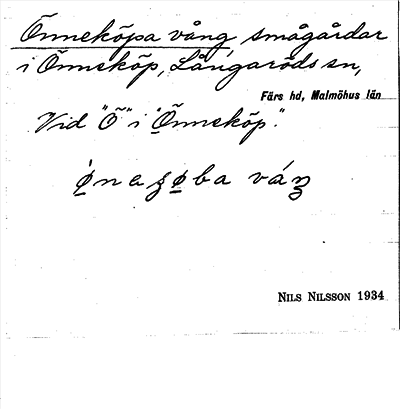 Önneköpa vång smågårdar
i Önneköp, Långaröds sn,
Färs hd, Malmöhus län
Vid "Ö" i "Önneköp".
NILS NILSSON 1934